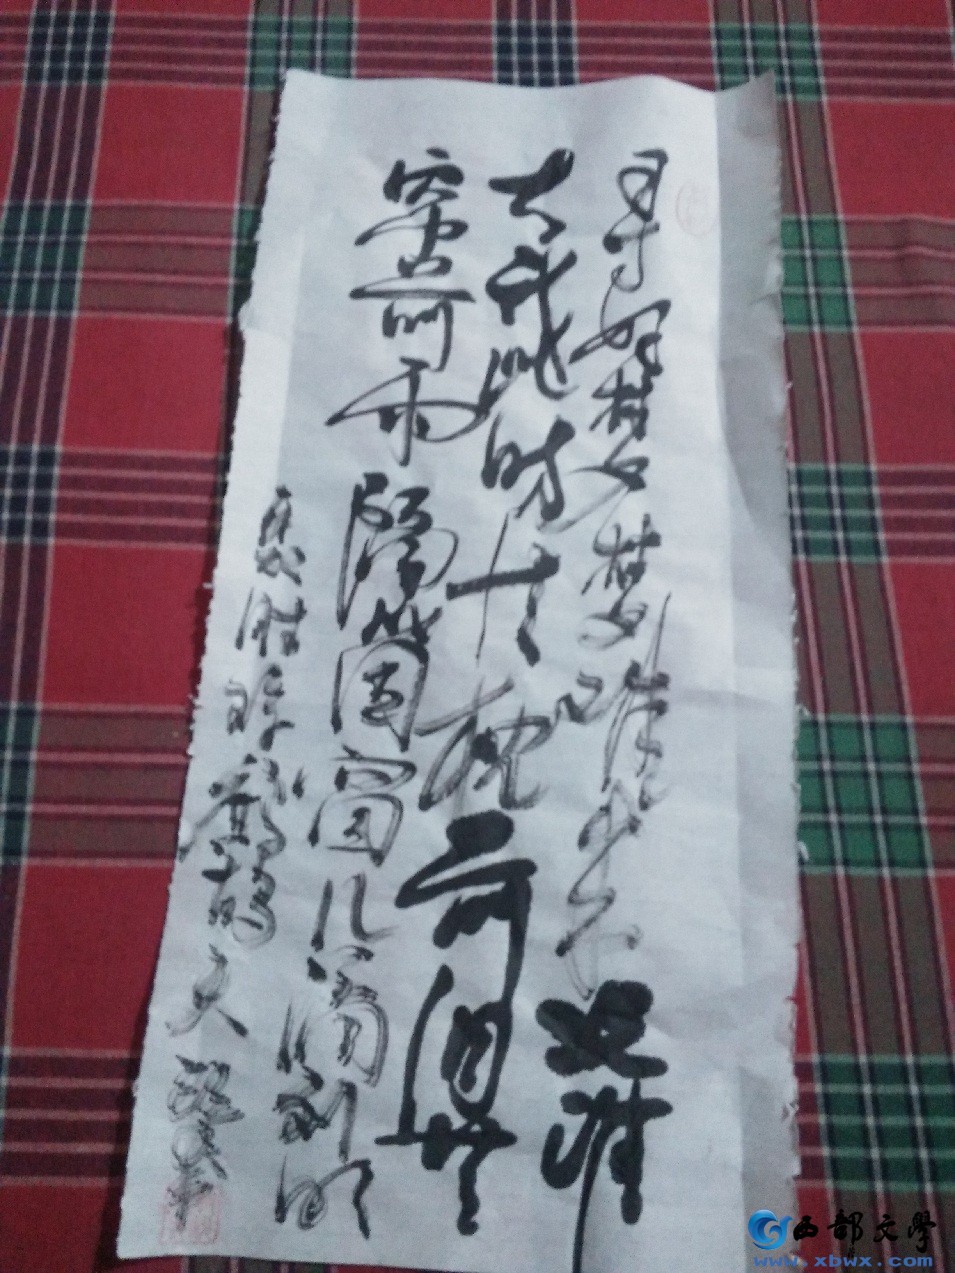 寻好梦梦难成况谁
知我此时情枕前泪共
帘前雨隔箇窗儿滴到明
聂胜琼鹧鸪天
西部文学
www.xbwx.com